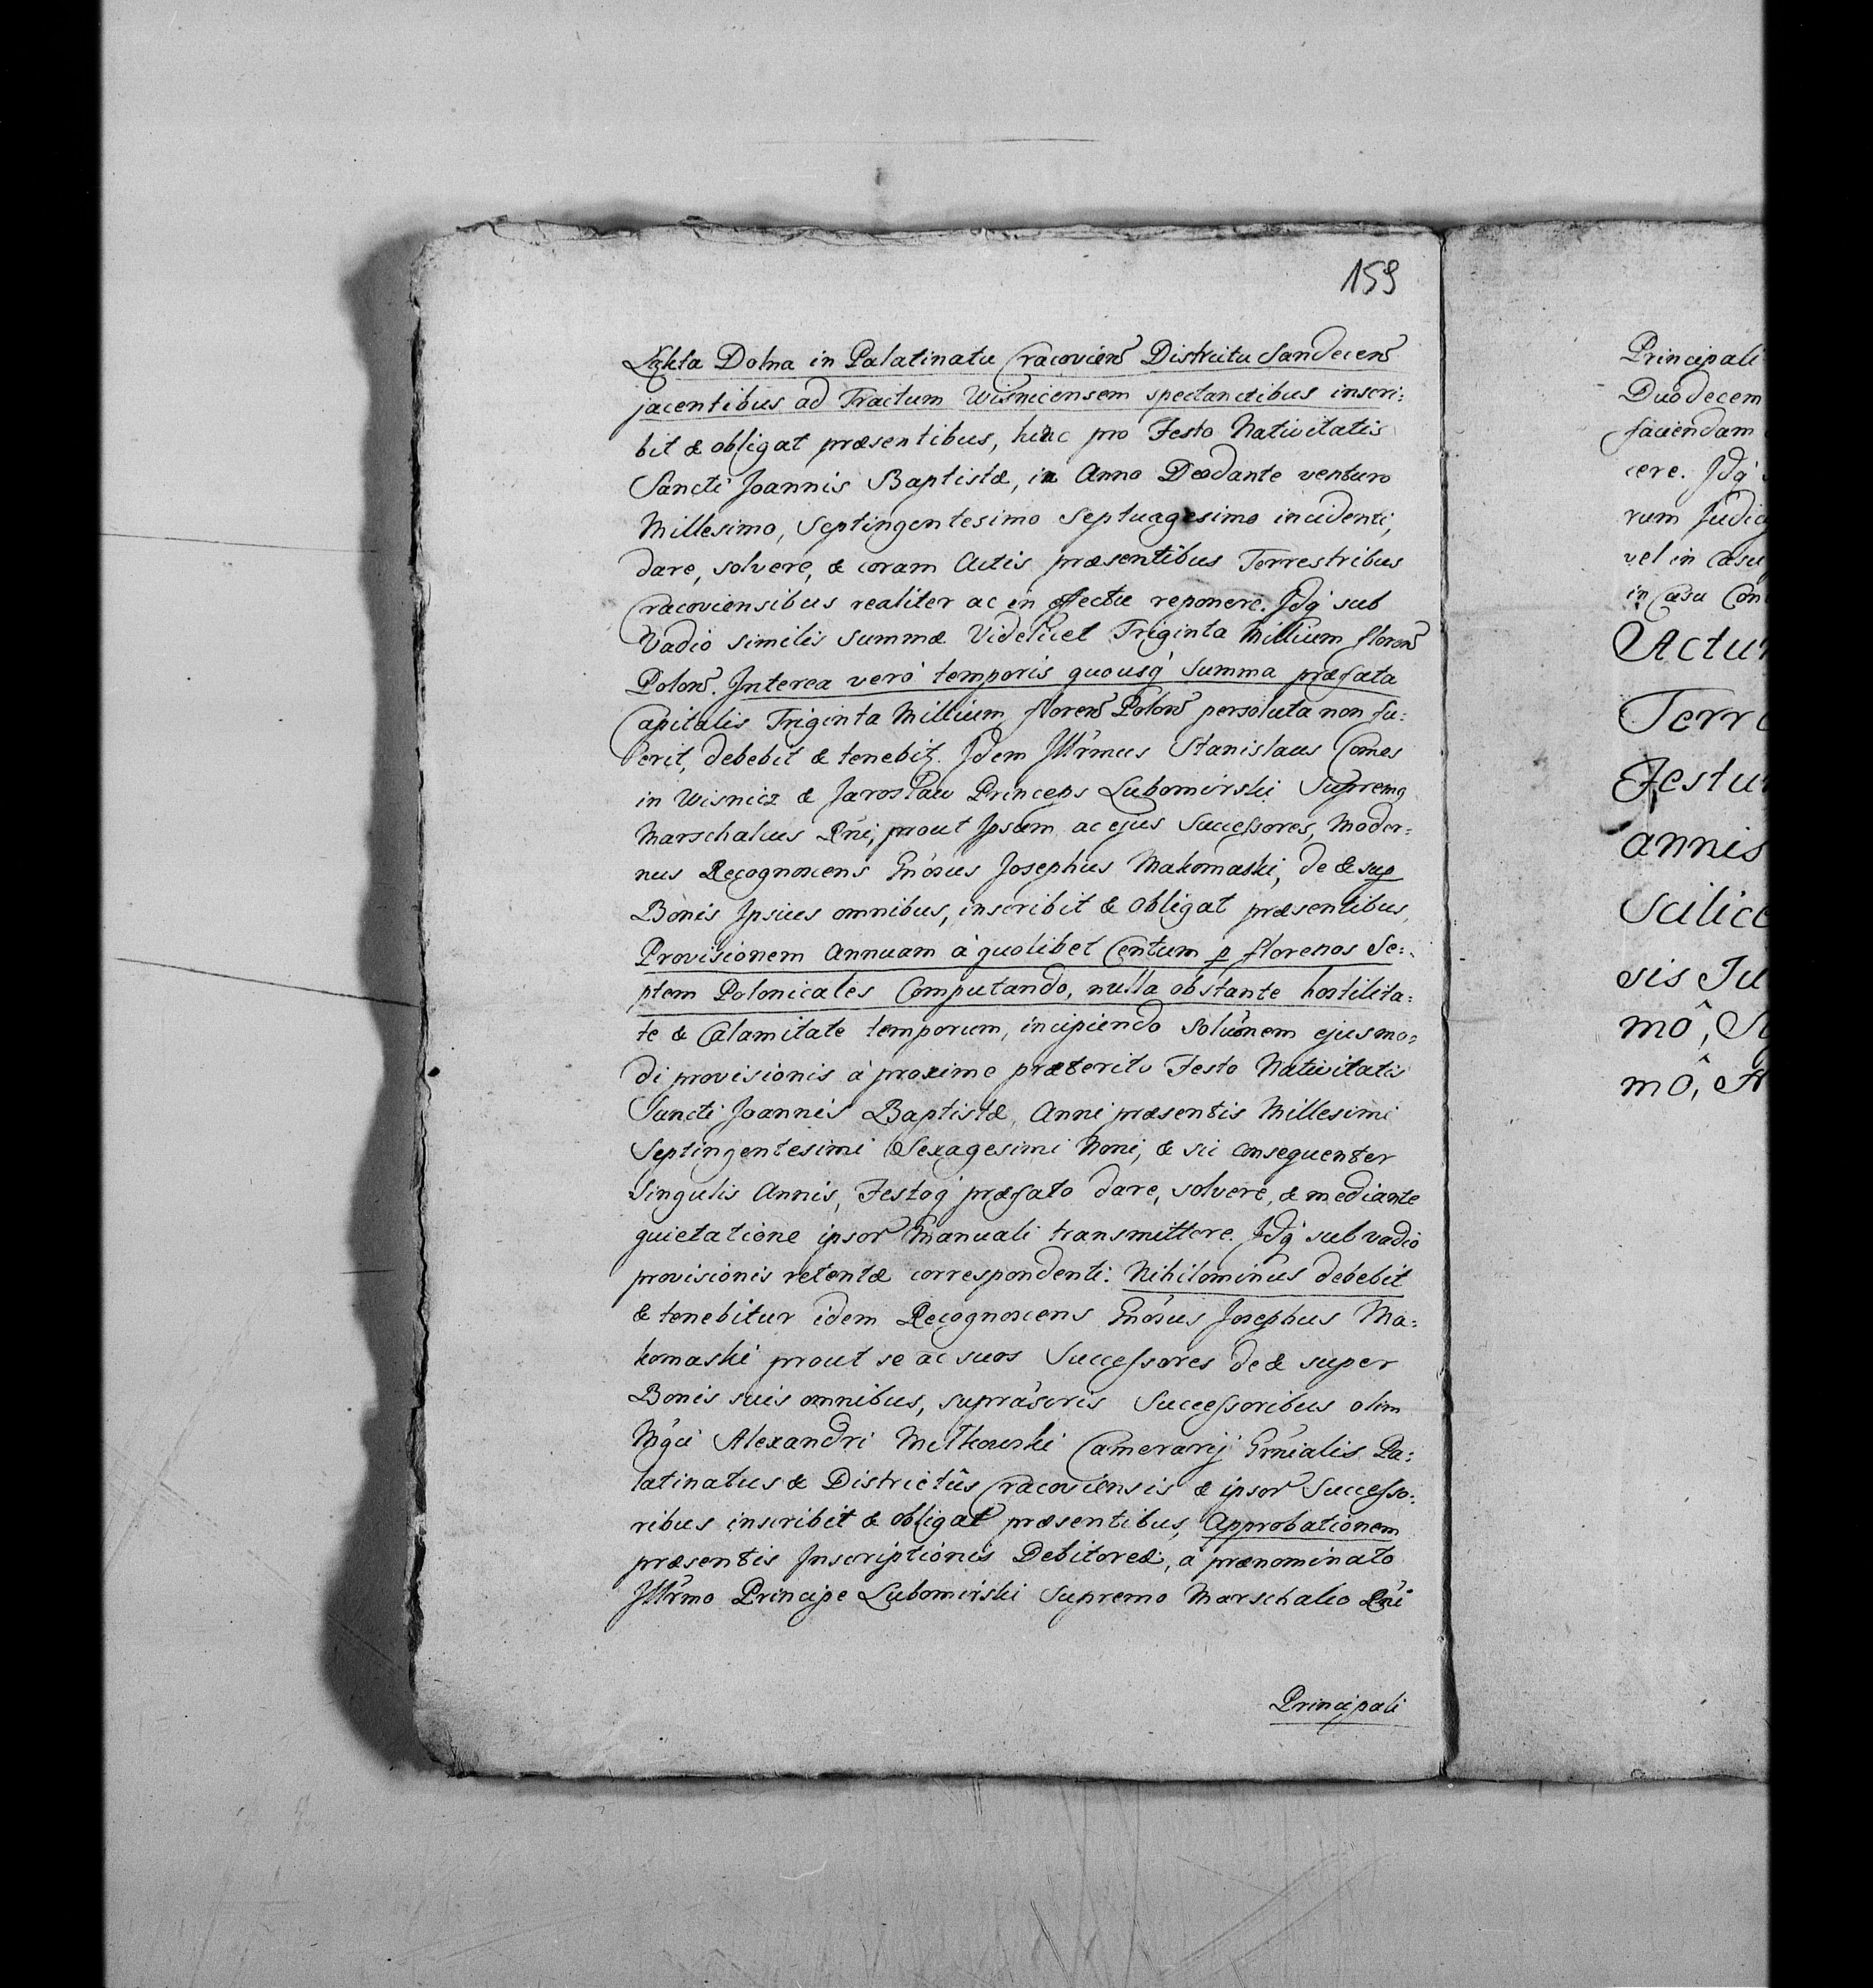 159
Łąkta Dolna in Palatinatu Cracovien̄ Districtu Sandecen̄
jacentibus ad Tractum Wisnicensem spectantibus inscri:
bit & obligat præsentibus, hinc pro Festo Nativitatis
Sancti Joannis Baptistæ, in Anno Deodante venturo
Millesimo, Septingentesimo Septuagesimo incidenti,
dare, solvere, & coram Actis præsentibus Terrestribus
Cracoviensibus realiter ac in effectu reponere. Jdq́ sub
Vadio similis summæ Videlicet Triginta Millium floren̄
Polon̄. Interea verò temporis quousq́ Summa præfata
Capitalis Triginta Millium floren̄ Polon̄ persoluta non fu:
erit, debebit & tenebit. Jdem Jllr̄mus Stanislaus Comes
in Wisnicz & Jarosław Princeps Lubomirski Supremq
Marschalcus Rńi, prout Jpsum ac ejus Successores, Moder:
nus Recognoscens Gńosus Josephus Makomaski, de & sup
Bonis Jpsius omnibus, inscribit & obligat præsentibus,
Provisionem Annuam à quolibet Centum p florenos Se:
ptem Polonicales Computando, nulla obstante hostilita:
te & Calamitate temporum, incipiendo Soluōnem ejusmo:
di provisionis à proxime præterito Festo Nativitatis
Sancti Joannis Baptistæ, Anni præsentis Millesimi
Septingentesimi Sexagesimi Noni, & sic consequenter
Singulis Annis, Festoq́ præfato dare, solvere, & mediante
quietatione ipsor̄ Manuali transmittere. Jdq́ sub vadio
provisionis retentæ correspondenti. Nihilominus debebit
& tenebitur idem Recognoscens Gńosus Josephus Ma:
komaski prout se ac suos Successores de & super
Bonis suis omnibus, suprás̄cris Successoribus olim
Mgći Alexandri Miłkowski Camerarij Gr̄nialis Pa:
latinatus & Districtûs Cracoviensis & ipsor̄ Successo:
ribus inscribit & obligat præsentibus, Approbationem
præsentis Jnscriptionis Debitoreæ, à prænominato
Jllr̄mo Principe Lubomirski Supremo Marschalco Rńi
Principali
Principali
Duodecem
faciendam
cere. Jdq́
rum Judic
vel in casu
in Casu Con
Actu
Terr
Festu
annis
Scilice
sis Ju
mô, S
mô,